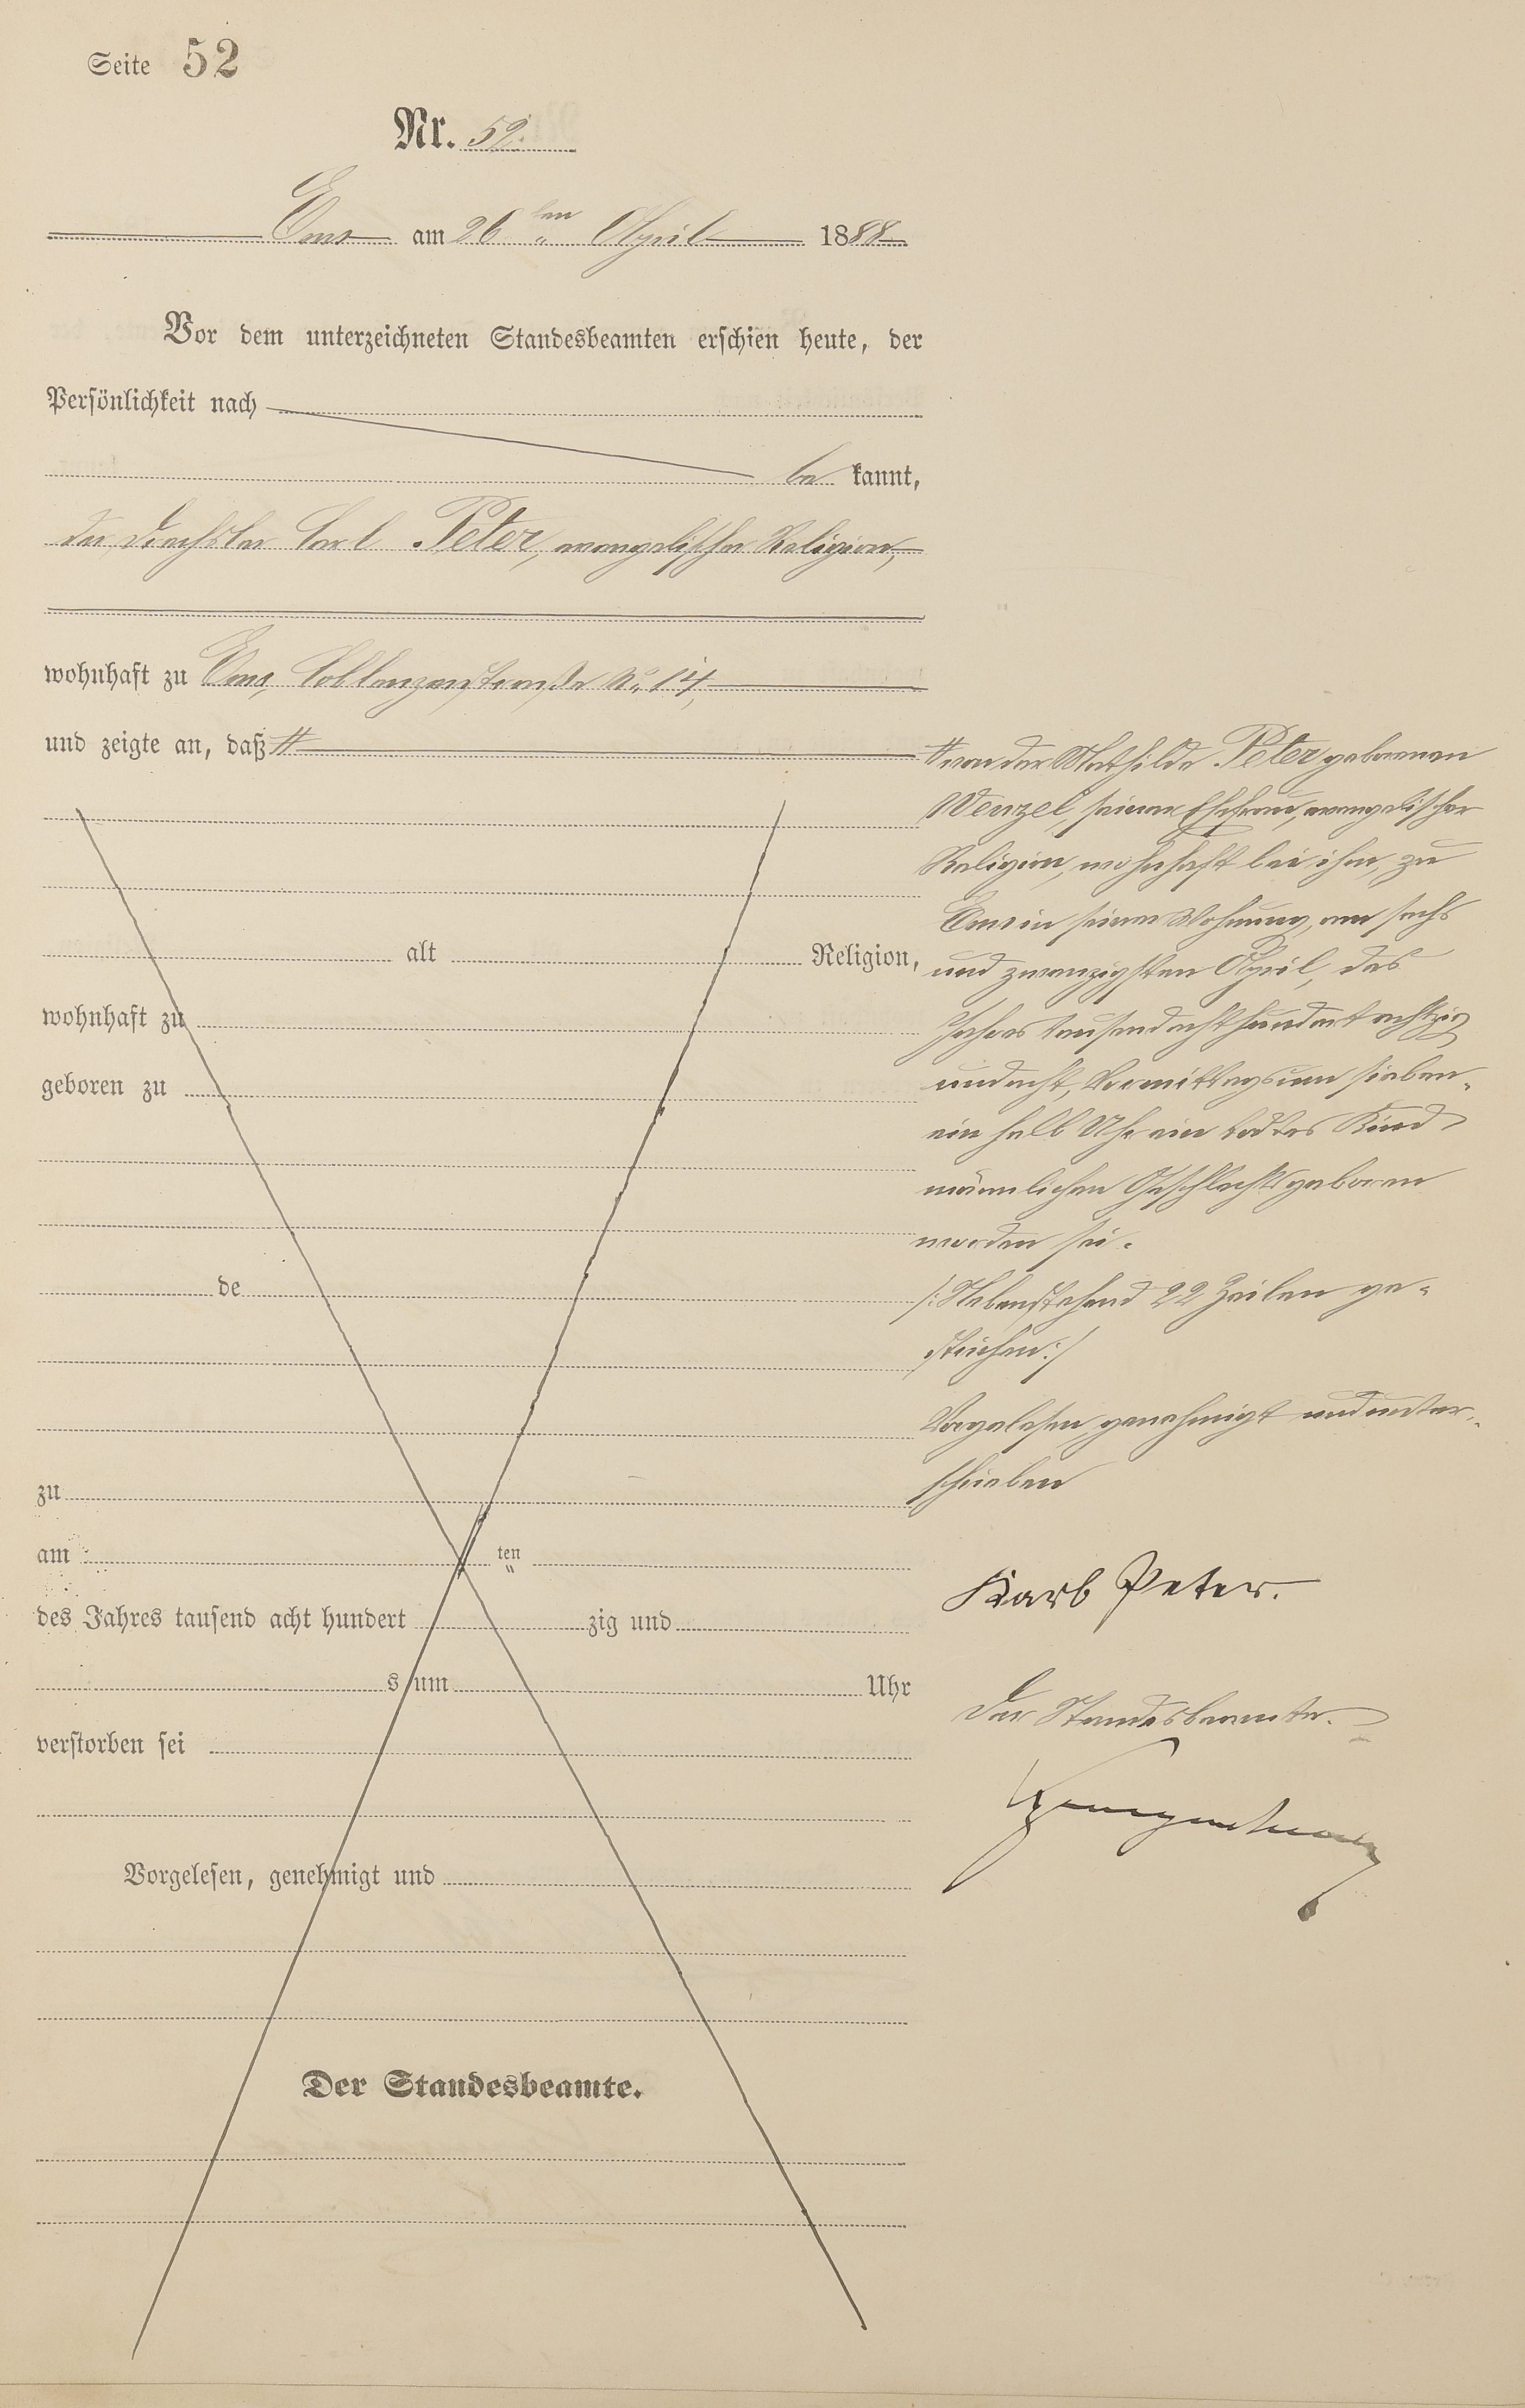 Seite 52
Nr. 52.
Ems am 26ten April 1888
Vor dem unterzeichneten Standesbeamten erschien heute, der
Persönlichkeit nach
be kannt,
der Drechsler Carl Peter, evangelischer Religion,
wohnhaft zu Ems, Coblenzerstraße No 14,
und zeigte an, daß #
alt Religion,
wohnhaft zu
geboren zu
de
zu
am ten
des Jahres tausend acht hundert zig und
s um Uhr
verstorben sei
Vorgelesen, genehmigt und
Der Standesbeamte.
# von der Mathilde Peter geborenen
Wenzel, seiner Ehefrau, evangelischer
Religion, wohnhaft bei ihm, zu
Ems in seiner Wohnung, am sechs
und zwanzigsten April, des
Jahres tausend acht hundert achtzig
und acht, Vormittags um sieben-
ein halb Uhr ein todtes Kind
männlichen Geschlechts geboren
worden sei.
/: Nebenstehend 22 Zeilen ge-
strichen :/
Vorgelesen, genehmigt und unter-
schrieben
Karl Peter.
Der Standesbeamte.